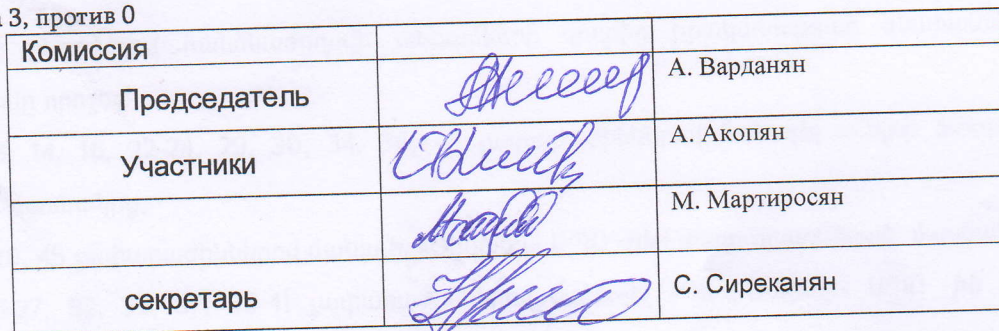 3, против 0
Комиссия
Председатель А. Варданян
Участники А. Акопян
М. Мартиросян
секретарь С. Сиреканян